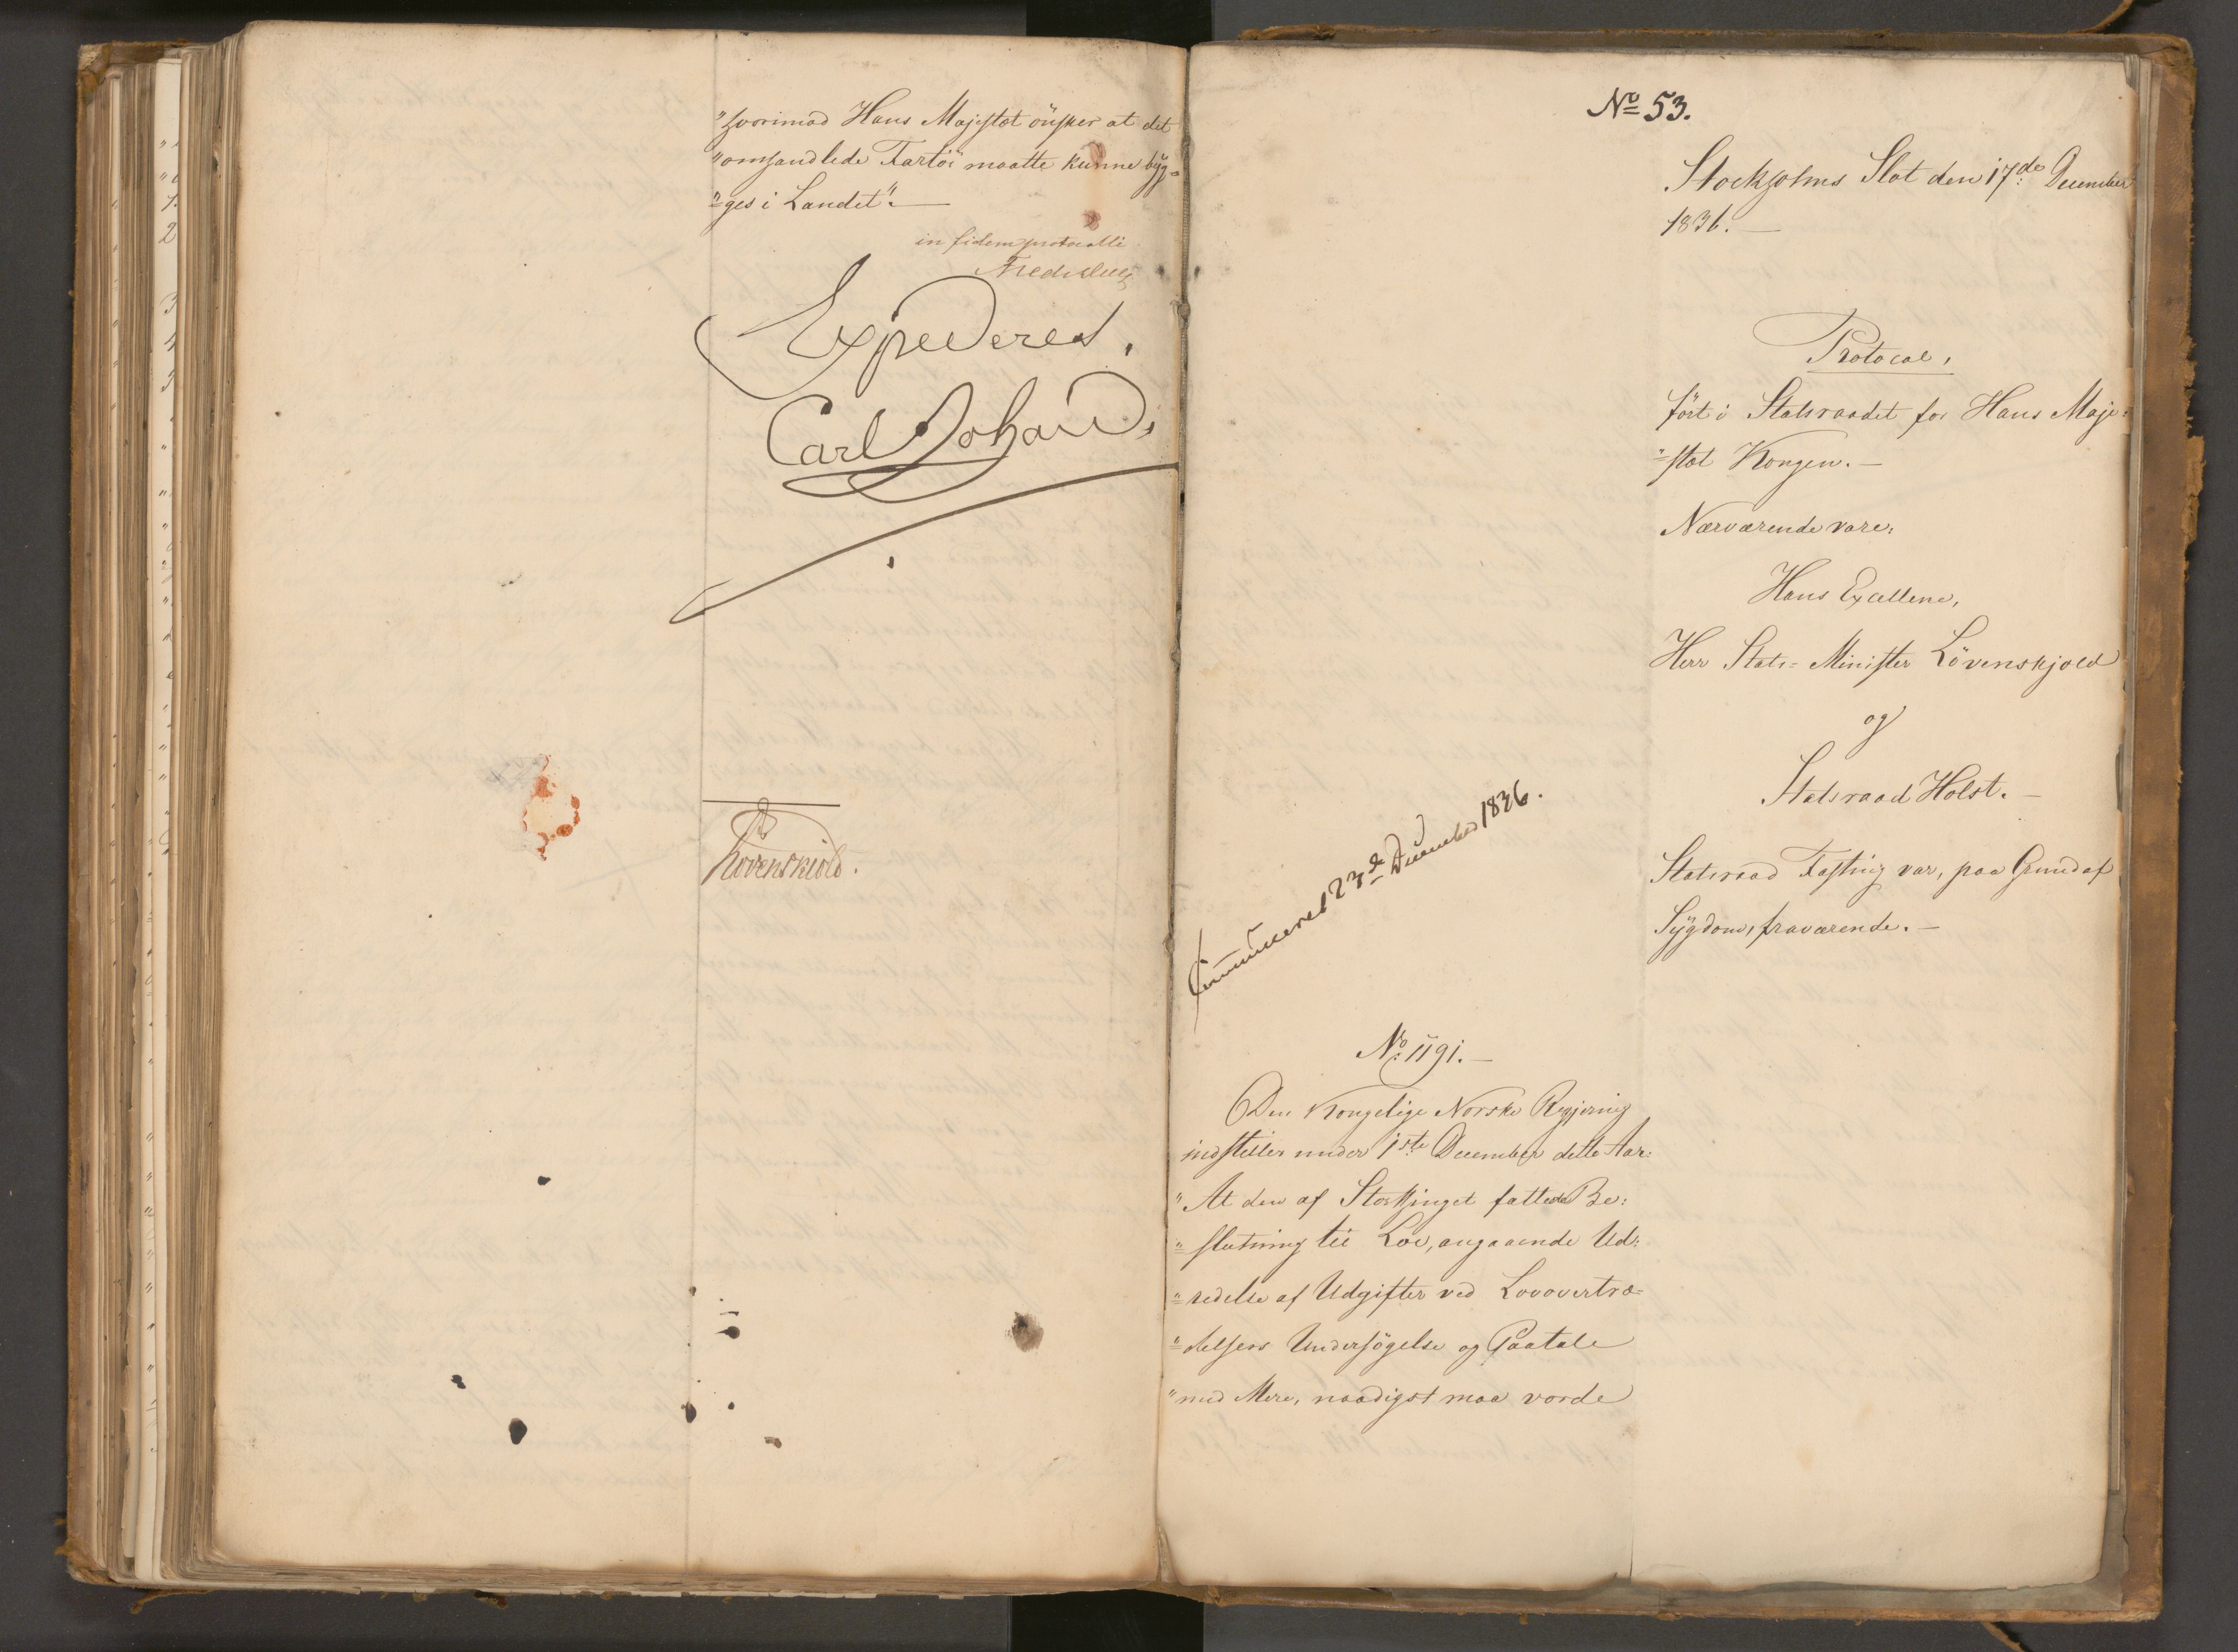 "hvorimod Hans Majestæt önsker at det
"omhandlede Fartöi maatte kunne byg=
"ges i Landet".
in fidem protocolli
Expederes.
Carl Johan
Lövenskiold.
No 53.
Stockholms Slot den 17de December
1836.
Protocol,
fört i Statsraadet for Hans Maje=
"stæt Kongen.
Nærværende vare:
Hans Excellence,
Herr Stats=Minister Lövenskjold
og
Statsraad Holst.
Statsraad Fasting var, paa Grund af
Sygdom, fraværende.
Communiceret 23de December 1836.
No 1191.
Den Kongelige Norske Regjering
indstiller under 1ste December dette Aar:
"At den af Storthinget fattede Be=
"slutning til Lov, angaaende Ud=
"redelse af Udgifter ved Lovovertræ=
"delsers Undersögelse og Paatale
"med Mere, naadigst maa vorde